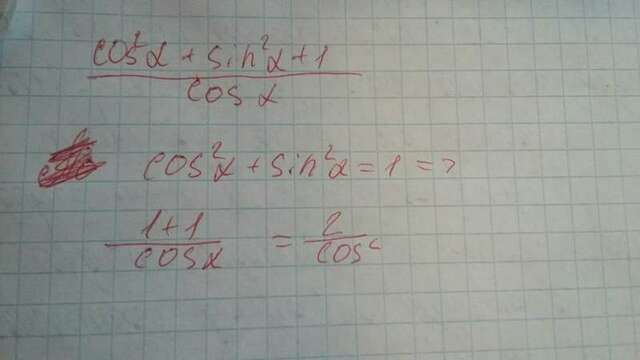 cos²α + sin²α + 1
cos α
cos²α + sin²α = 1 =>
1+1 = 2
cosα cos